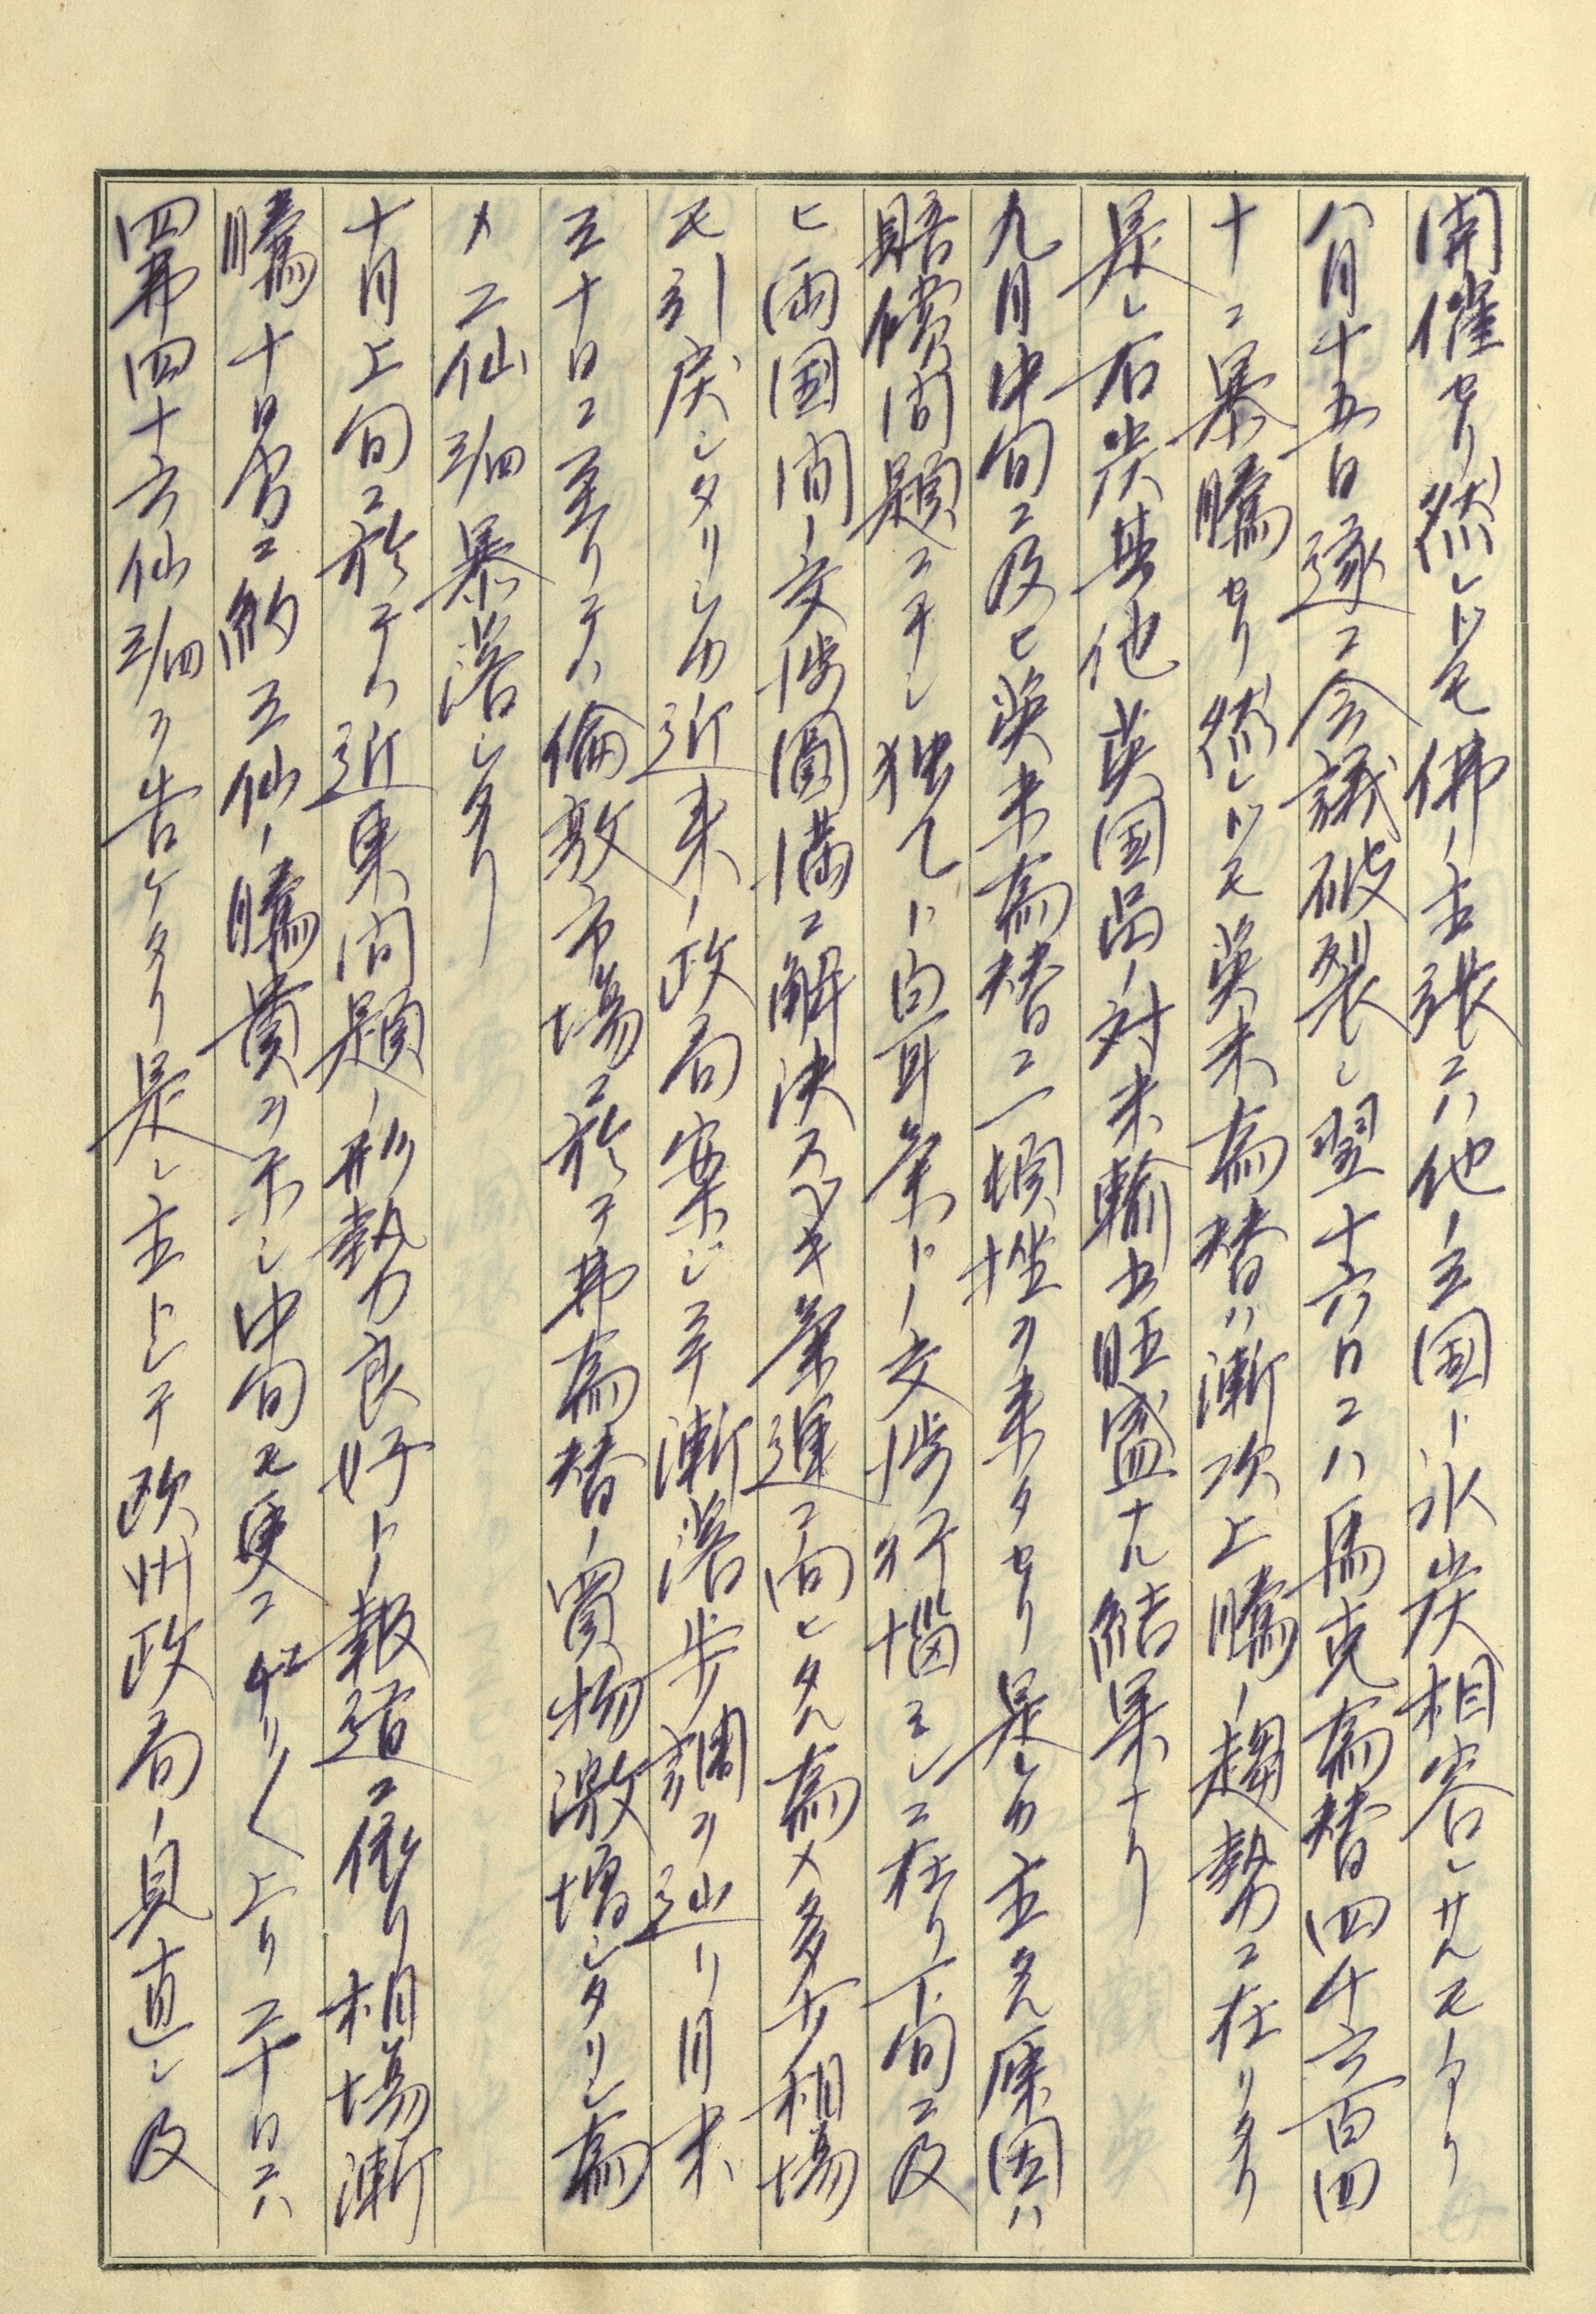 開催セリ然レドモ佛ノ主張ニハ他ノ立国ト氷炭相容レサルモノアリ
八月十五日遂ニ会議破裂シ翌十六日ニハ馬克為替四千六百四
十ニ暴騰セリ然レドモ英米為替ハ漸次上騰ノ趨勢ニ在リタリ
是レ石炭其他英国品ノ対米輸出旺盛ナル結果ナリ
九月中旬ニ及ヒ英米為替ニ一頓挫ヲ来タセリ是レカ主タル原因ハ
賠償問題ニチシ独乙ト白耳義トノ交渉行悩ミシニ在リ下旬ニ及
ヒ両国間ノ交渉圓満ニ解決スヘキ気運ニ向ヒタル為メ多少相場
モ引戻シタリシカ近東ノ政局案ジラ漸落歩調ヲ辿リ月末
三十日ニ至リテハ倫敦市場ニ於テ弗為替ノ買物激増シタリシ為
メ二仙3/四暴落シタリ
十月上旬ニ於テハ近東問題ノ形勢力良好トノ報道ニ依リ相場漸
騰十日分ニ約三仙ノ騰貴ヲ示シ中旬モ更ニヂリ〱上リ二十日ニハ
四弗四十六仙3/四ヲ告ケタリ是レ主トシテ欧州政局ノ見直シ及